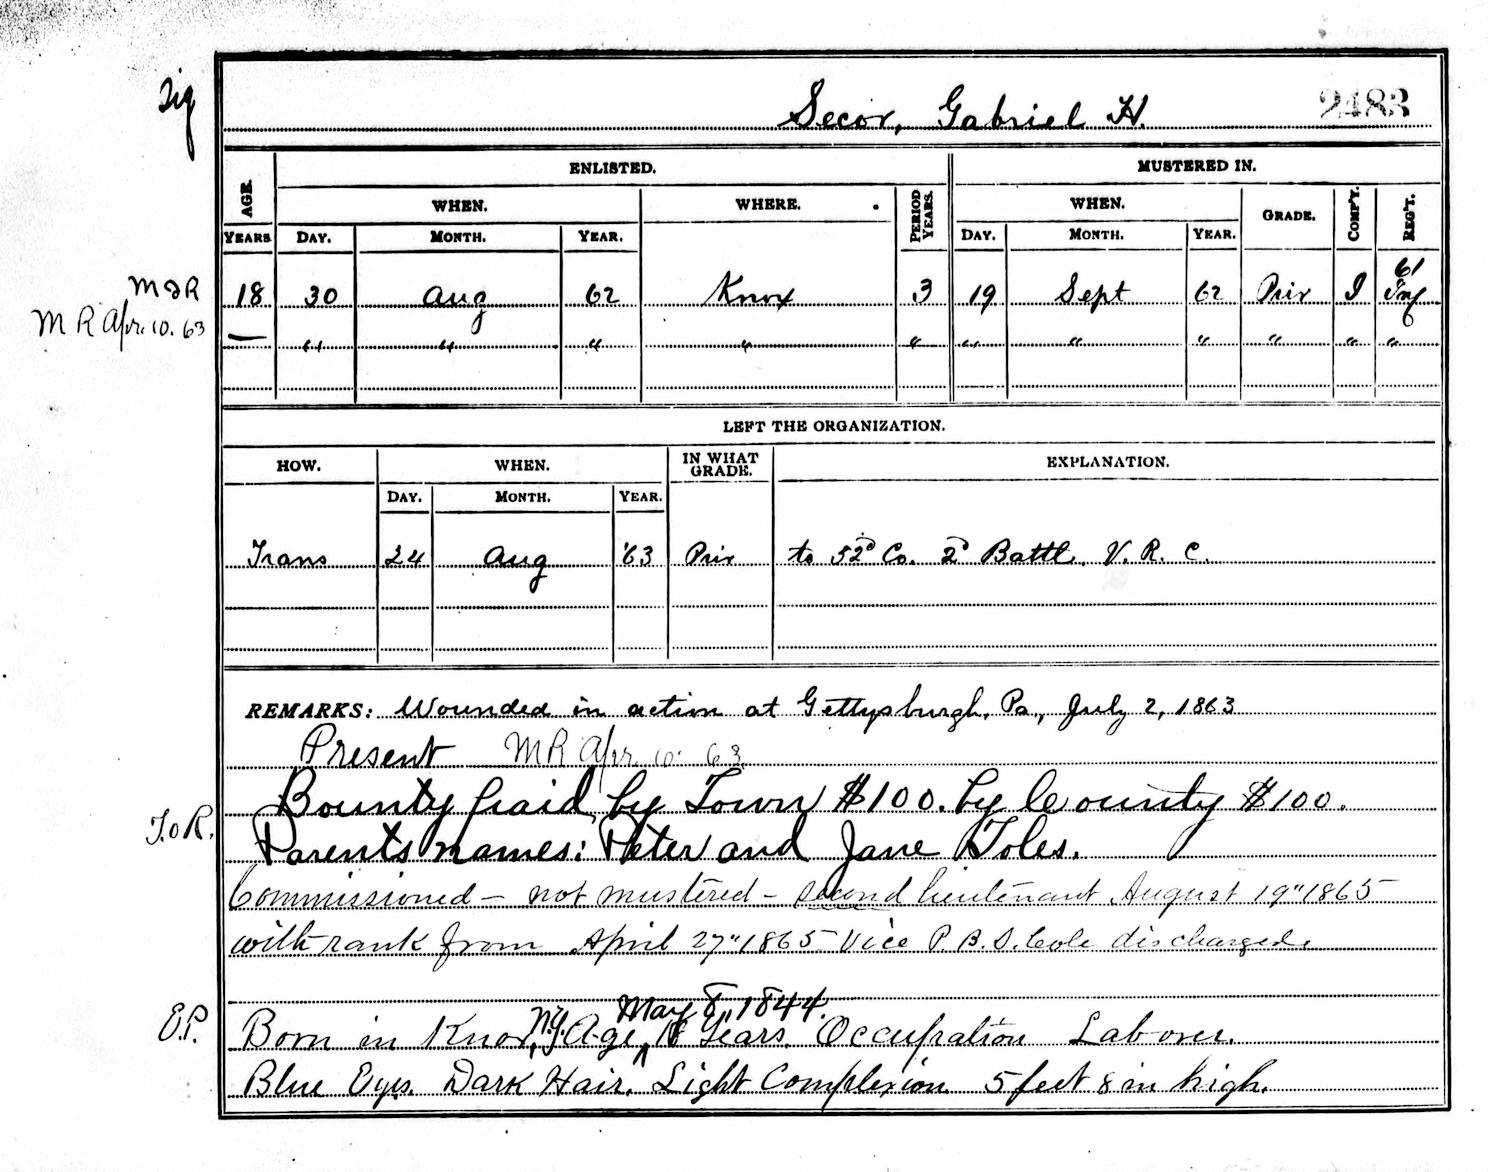 Sig
Secor, Gabriel H. 2483
ENLISTED. MUSTERED IN.
AGE. WHEN. WHERE. PERIOD YEARS. WHEN. GRADE. COMP'Y. REG'T.
YEARS DAY. MONTH. YEAR. DAY. MONTH. YEAR.
M I R 18 30 Aug 62 Knox 3 19 Sept 62 Priv I 61 Inf
M R Apr. 10. 63 — " " " " " " " " " " "
LEFT THE ORGANIZATION.
HOW. WHEN. IN WHAT GRADE. EXPLANATION.
DAY. MONTH. YEAR.
Trans 24 Aug '63 Priv to 52d Co. 2d Battl. V. R. C.
REMARKS: Wounded in action at Gettysburgh, Pa., July 2, 1863
Present M R Apr. 10. 63
Bounty paid by Town $100. by County $100.
T.o R. Parents names: Peter and Jane Toles.
Commissioned – not mustered – second lieutenant August 19" 1865
with rank from April 27" 1865 Vice P. B. S. Cole discharged.
May 8, 1844.
E.P. Born in Knox, N.Y. Age, 18 Years. Occupation Laborer.
Blue Eyes. Dark Hair. Light Complexion 5 feet 8 in high.